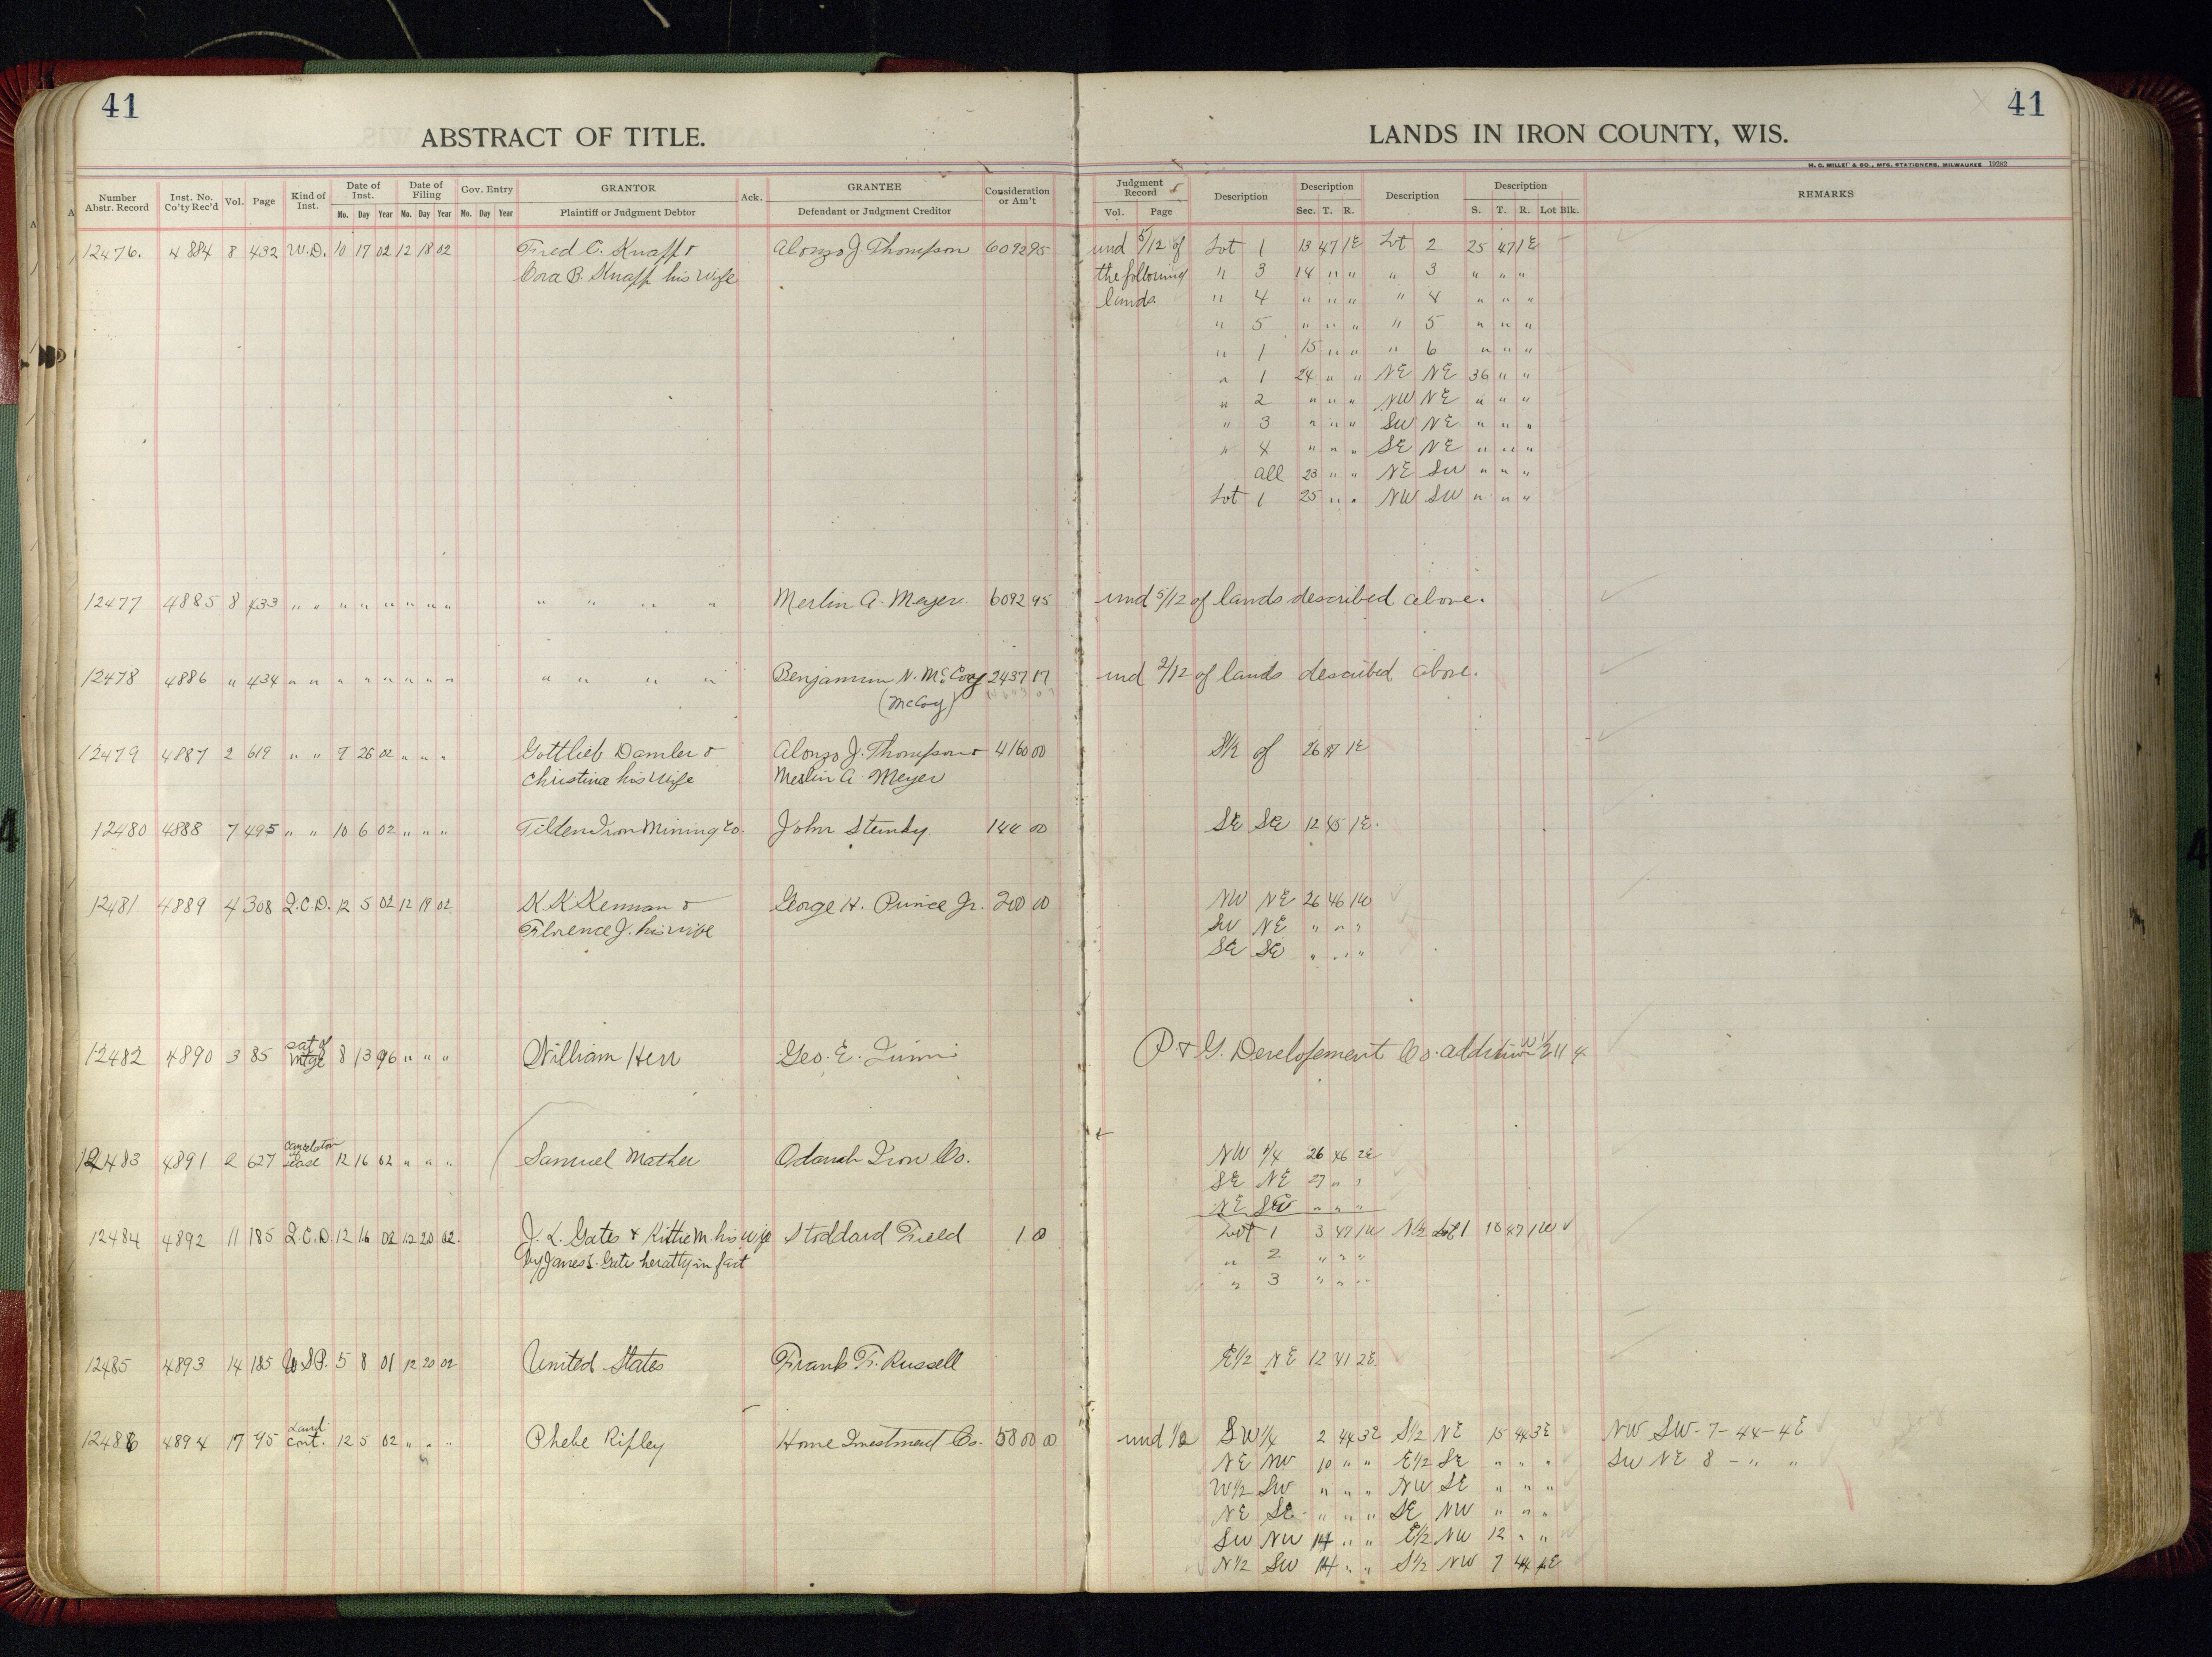 41
ABSTRACT OF TITLE.
LANDS IN IRON COUNTY, WIS.
41
H. C. MILLER & CO., MFG. STATIONERS, MILWAUKEE 19282
Number Abstr. Record Inst. No. Co'ty Rec'd Vol. Page Kind of Inst. Date of Inst. Mo. Day Year Date of Filing Mo. Day Year Gov. Entry Mo. Day Year GRANTOR Plaintiff or Judgment Debtor Ack. GRANTEE Defendant or Judgment Creditor Consideration or Am't
Judgment Record Vol. Page Description Description Sec. T. R. Description Description S. T. R. Lot Blk. REMARKS
12476. 4884 8 432 W.D. 10 17 02 12 18 02 Fred C. Knapp & Alonzo J. Thompson 6092 95 und 5/12 of Lot 1 13 47 1E Lot 2 25 47 1E
Cora B. Knapp his wife the following " 3 14 " " " 3 " " "
lands " 4 " " " " 4 " " "
" 5 " " " " 5 " " "
" 1 15 " " " 6 " " "
" 1 24 " " NE NE 36 " "
" 2 " " " NW NE " " "
" 3 " " " SW NE " " "
" 4 " " " SE NE " " "
all 23 " " NE SW " " "
Lot 1 25 " " NW SW " " "
12477 4885 8 433 " " " " " " " " " " " " Merlin A. Meyer 6092 95 und 5/12 of lands described above.
12478 4886 " 434 " " " " " " " " " " " " Benjamin N. McCoy 2437 17 und 2/12 of lands described above.
(McCoy)
12479 4887 2 619 " " 9 26 02 " " " Gottlieb Damler & Alonzo J. Thompson & 4160 00 S½ of 26 47 1E
Christina his wife Merlin A. Meyer
12480 4888 7 495 " " 10 6 02 " " " Tilden Iron Mining Co. John 144 00 SE SE 12 45 1E.
12481 4889 4 308 Q.C.D. 12 5 02 12 19 02 K K Kennan & George H. Prince Jr. 200 00 NW NE 26 46 1W
Florence J. his wife SW NE " " "
SE SE " " "
12482 4890 3 85 Sat of Mtge 8 13 96 " " " William Herr Geo. E. P & G. Developement Co. addition
12483 4891 2 627 Lease 12 16 02 " " " Samuel Mather Odanah Iron Co. NW ¼ 26 46 2E
SE NE 27 " "
NE SW " " "
12484 4892 11 185 Q.C.D. 12 16 02 12 20 02. J. L. Gates & Kittie M. his wife Stoddard Field 1 00 Lot 1 3 47 1W N½ Lot 1 10 47 1W
by James L. Gates her atty in fact " 2 " " "
" 3 " " "
12485 4893 14 185 U.S.P. 5 8 01 12 20 02 United States Frank F. Russell E½ NE 12 41 2E
12486 4894 17 45 Land Cont. 12 5 02 " " " Phebe Ripley Home Investment Co. 5800 00 und ½ SW¼ 2 44 3E S½ NE 15 44 3E NW SW - 7 - 44 - 4E
NE NW 10 " " E½ SE " " " SW NE 8 - " "
W½ SW " " " NW SE " " "
NE SE " " " SE NW " " "
SW NW 14 " " E½ NW 12 " "
N½ SW 14 " " S½ NW 7 44 4E